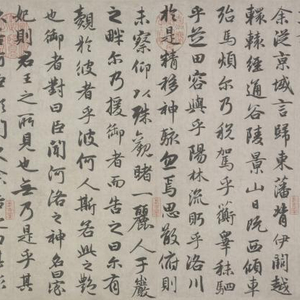 余從京城言歸東藩背伊闕越
轘轅經通谷陵景山日既西傾車
殆馬煩尔乃稅駕乎蘅皋秣駟
乎芝田容與乎陽林流眄乎洛川
於是精移神駭忽焉思散俯則
未察仰以殊觀睹一麗人于巖
之畔尔乃援御者而告之曰尔有
覿於彼者乎彼何人斯若此之豔
也御者對曰臣聞河洛之神名曰宓
妃則君王之所見也無乃是乎其